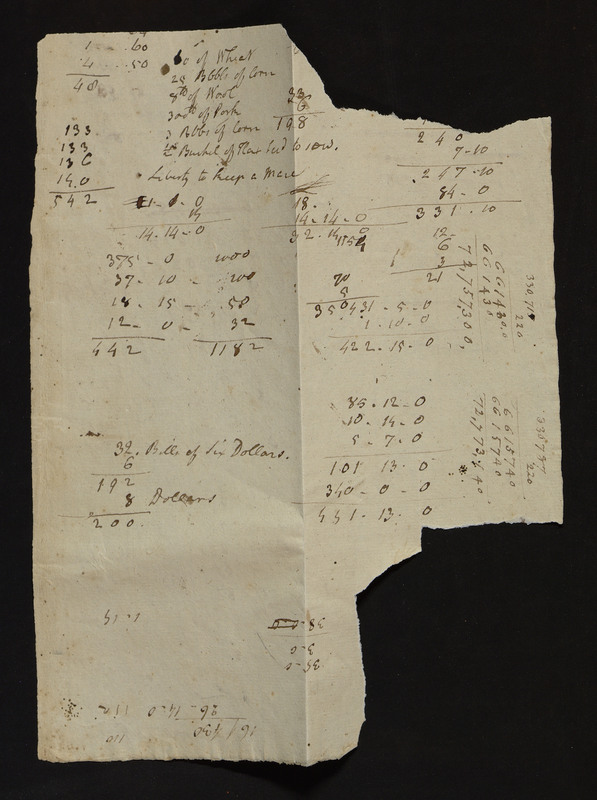 1 .. 60
4 .. 50
48
60 of Wheat
25 Bbbls of Corn
8 lb of Wool
300 lb of Pork
3 Bbls of Corn
Bushel of Flax Seed to sow.
Liberty to Keep a Mare
133
133
136
14.0
542
33
6
198
240
7-10
247-10
84-0
331.10
14-14-0
18.
14-14-0
32-14-0
375-0 1000
37-10-
18-15-58
12-0-32
442 1182
12-
6
1 3
70 21
5
350
431-5-0
1-10-0
422-15-0
661430.0
66143
72757300,
330 7
220
85-12-0
10-14-0
5-7-0
101 13-0
340-0-0
441-13-0
6615740
6615740
220
32. Bills of Six Dollars.
6
192
8 Dollars
200.
38-0-0
3-0
35-0
26-14-0
16
110